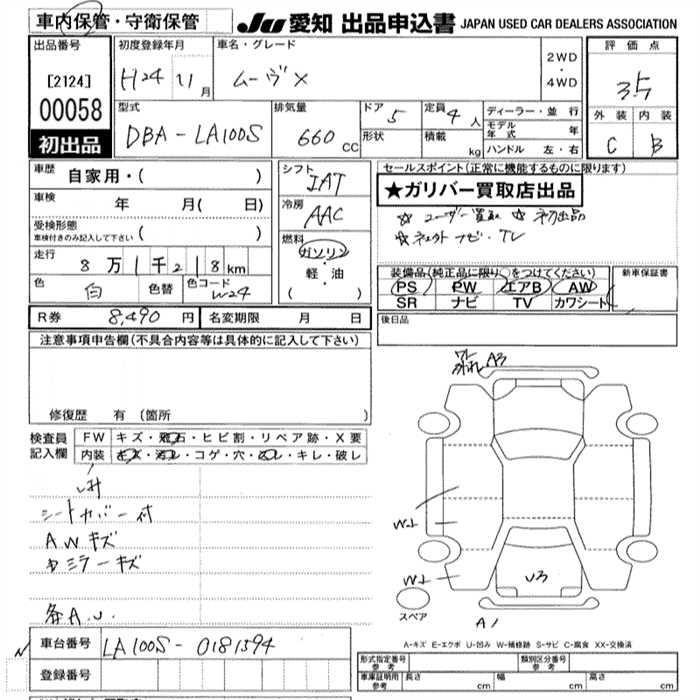 車内保管・守衛保管 JU 愛知 出品申込書 JAPAN USED CAR DEALERS ASSOCIATION
出品番号 初度登録年月 車名・グレード 評価点
[2124] H24 11月 ムーヴX 2WD・4WD 3.5
00058 型式 排気量 ドア 5 定員 4人 ディーラー・並行 外装 内装
初出品 DBA-LA100S 660cc 形状 積載 kg モデル年式 年 C B
ハンドル 左・右
車歴 自家用・( ) シフト IAT セールスポイント(正常に機能するものに限ります)
車検 年 月( 日) 冷房 AAC ★ガリバー買取店出品
受検形態 車検付きのみ記入して下さい ( ) 燃料 ☆ユーザー買取 ☆初出品
走行 8万1千218km ガソリン・軽・油 ( )
色 白 色替 色コード W24 装備品(純正品に限り○をつけてください) 新車保証書
PS PW エアB AW
SR ナビ TV カワシート
R券 8,490円 名変期限 月 日 後日品
注意事項申告欄(不具合内容等は具体的に記入して下さい)
修復歴 有(箇所
A3
検査員記入欄 FW キズ・飛石・ヒビ割・リペア跡・X要
内装 キズ・汚レ・コゲ・穴・凹レ・キレ・破レ
シートカバー付
AWキズ
W
ミラーキズ
W
U3
スペア
A1
各A.U.
A-キズ E-エクボ U-凹み W-補修跡 S-サビ C-腐食 XX-交換済
車台番号 LA100S-0181594
登録番号
形式指定番号 参考 類別区分番号 参考
車庫証明用 参考 長さ cm 幅 cm 高さ cm